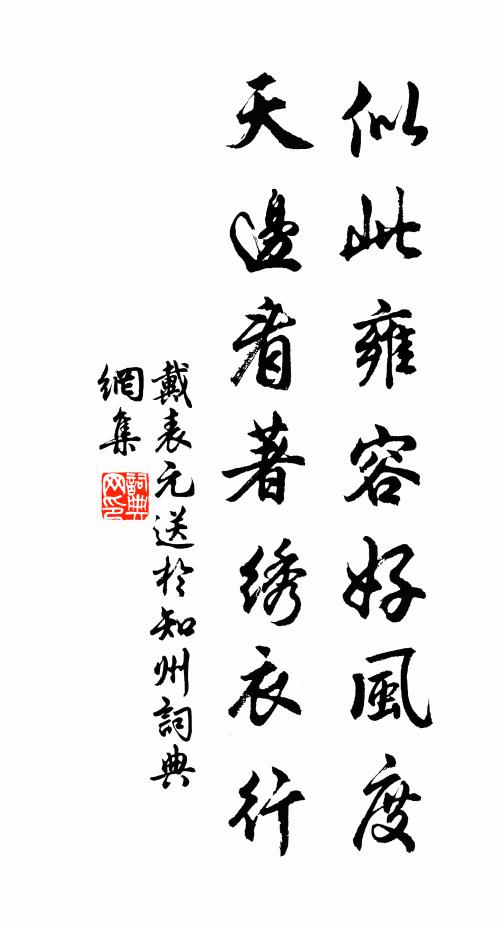 似此雍容好風度
天邊看著绣衣行
戴表元送於知州詞典
網集
詞典
网印